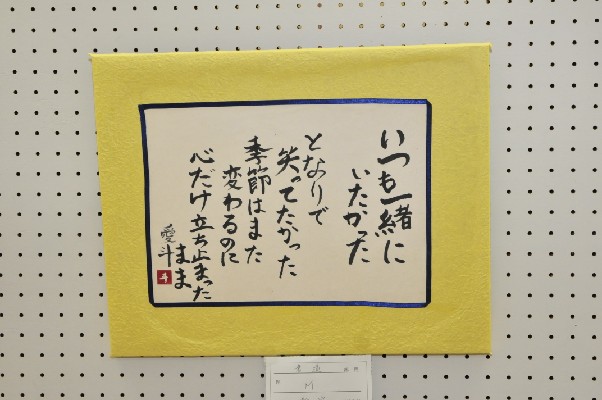 いつも一緒に
いたかった
となりで
笑ってたかった
季節はまた
変わるのに
心だけ立ち止まった
まま
愛斗
斗